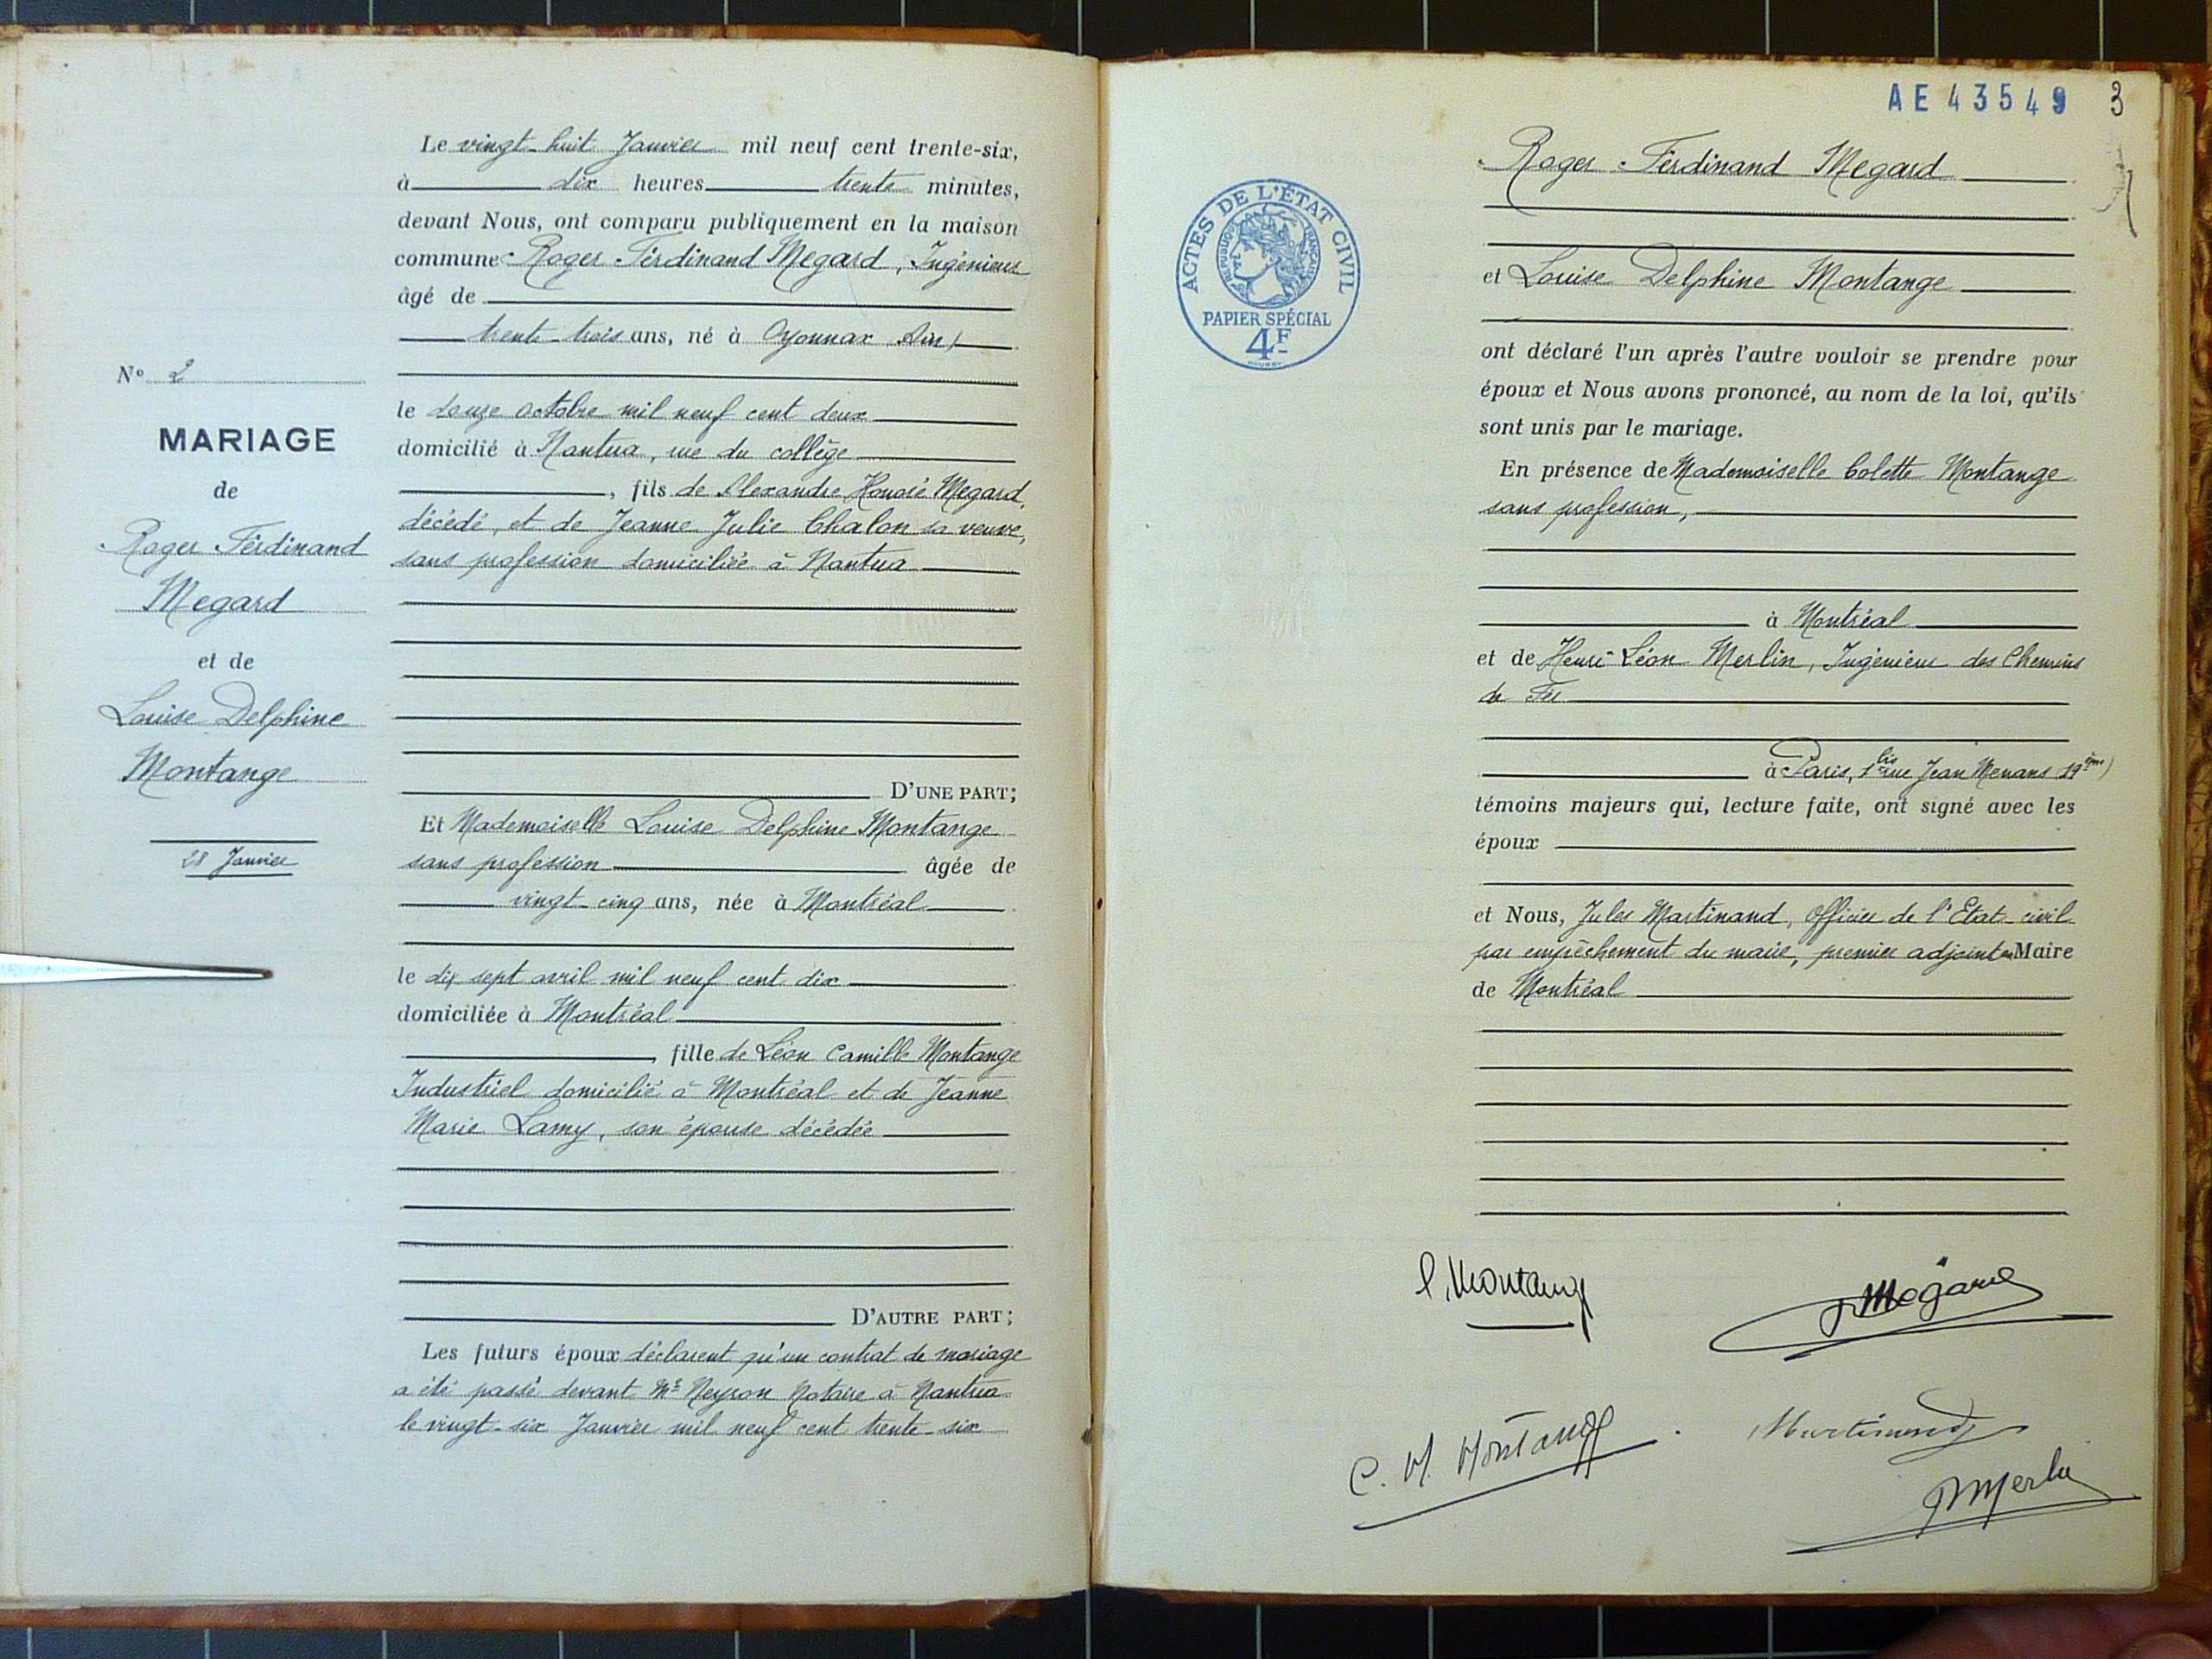 Le vingt-huit Janvier mil neuf cent trente-six,
à dix heures trente minutes,
devant Nous, ont comparu publiquement en la maison
commune Roger Ferdinand Megard, Ingénieur
âgé de
trente-trois ans, né à Oyonnax (Ain)
le douze octobre mil neuf cent deux
domicilié à Nantua, rue du collège
, fils de Alexandre Honoré Megard,
décédé, et de Jeanne Julie Chalon sa veuve,
sans profession domiciliée à Nantua
D'UNE PART;
Et Mademoiselle Louise Delphine Montange
sans profession âgée de
vingt-cinq ans, née à Montréal
le dix sept avril mil neuf cent dix
domiciliée à Montréal
, fille de Léon Camille Montange
Industriel domicilié à Montréal et de Jeanne
Marie Lamy, son épouse décédée
D'AUTRE PART;
Les futurs époux déclarent qu'un contrat de mariage
a été passé devant Me Neyron Notaire à Nantua
le vingt-six Janvier mil neuf cent trente-six
No 2
MARIAGE
de
Roger Ferdinand
Megard
et de
Louise Delphine
Montange
28 Janvier
AE 43549 3
ACTES DE L'ÉTAT CIVIL
RÉPUBLIQUE FRANÇAISE
PAPIER SPÉCIAL
4F
Roger Ferdinand Megard
et Louise Delphine Montange
ont déclaré l'un après l'autre vouloir se prendre pour
époux et Nous avons prononcé, au nom de la loi, qu'ils
sont unis par le mariage.
En présence de Mademoiselle Colette Montange
sans profession,
à Montréal
et de Henri Léon Merlin, Ingénieur des Chemins
de Fer
à Paris, 1bis rue Jean Menans 19ème)
témoins majeurs qui, lecture faite, ont signé avec les
époux
et Nous, Jules Martinand, Officier de l'Etat-civil
par empêchement du maire, premier adjoint au Maire
de Montréal
l. Montange
Megard
C. M. Montange
Martinand
Merlin